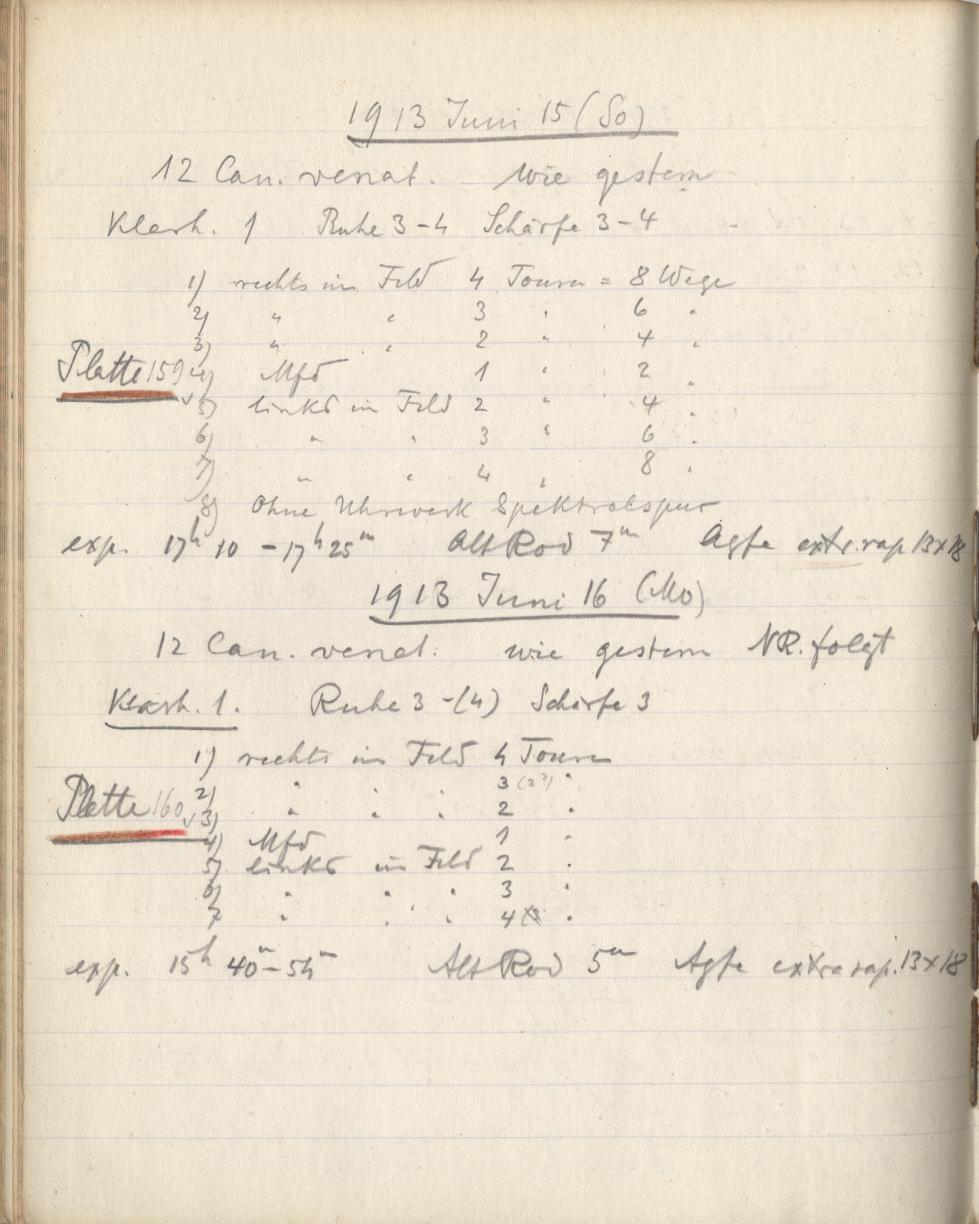 1913 Juni 15 (So)
12 Can. venat. wie gestern
Klarh. 1 Ruhe 3-4 Schärfe 3-4
1) rechts im Feld 4 Touren = 8 Wege
2) " " 3 " 6 "
3) " " 2 " 4 "
Platte 159 4) Mfd 1 " 2 "
5) links im Feld 2 " 4 "
6) " " 3 " 6 "
7) " " 4 " 8 "
8) Ohne Uhrwerk Spektralspur
exp. 17h 10 - 17h 25m Alt Rod 7m Agfa extr. rap. 13x18
1913 Juni 16 (Mo)
12 Can. venat. wie gestern NR. folgt
Klarh. 1. Ruhe 3-(4) Schärfe 3
1) rechts im Feld 4 Touren
2) " " " 3 (2?) "
Platte 160 3) " " " 2 "
4) Mfd 1 "
5) links im Feld 2 "
6) " " " 3 "
7 " " " 4 "
exp. 15h 40m-54m Alt Rod 5m Agfa extra rap. 13x18